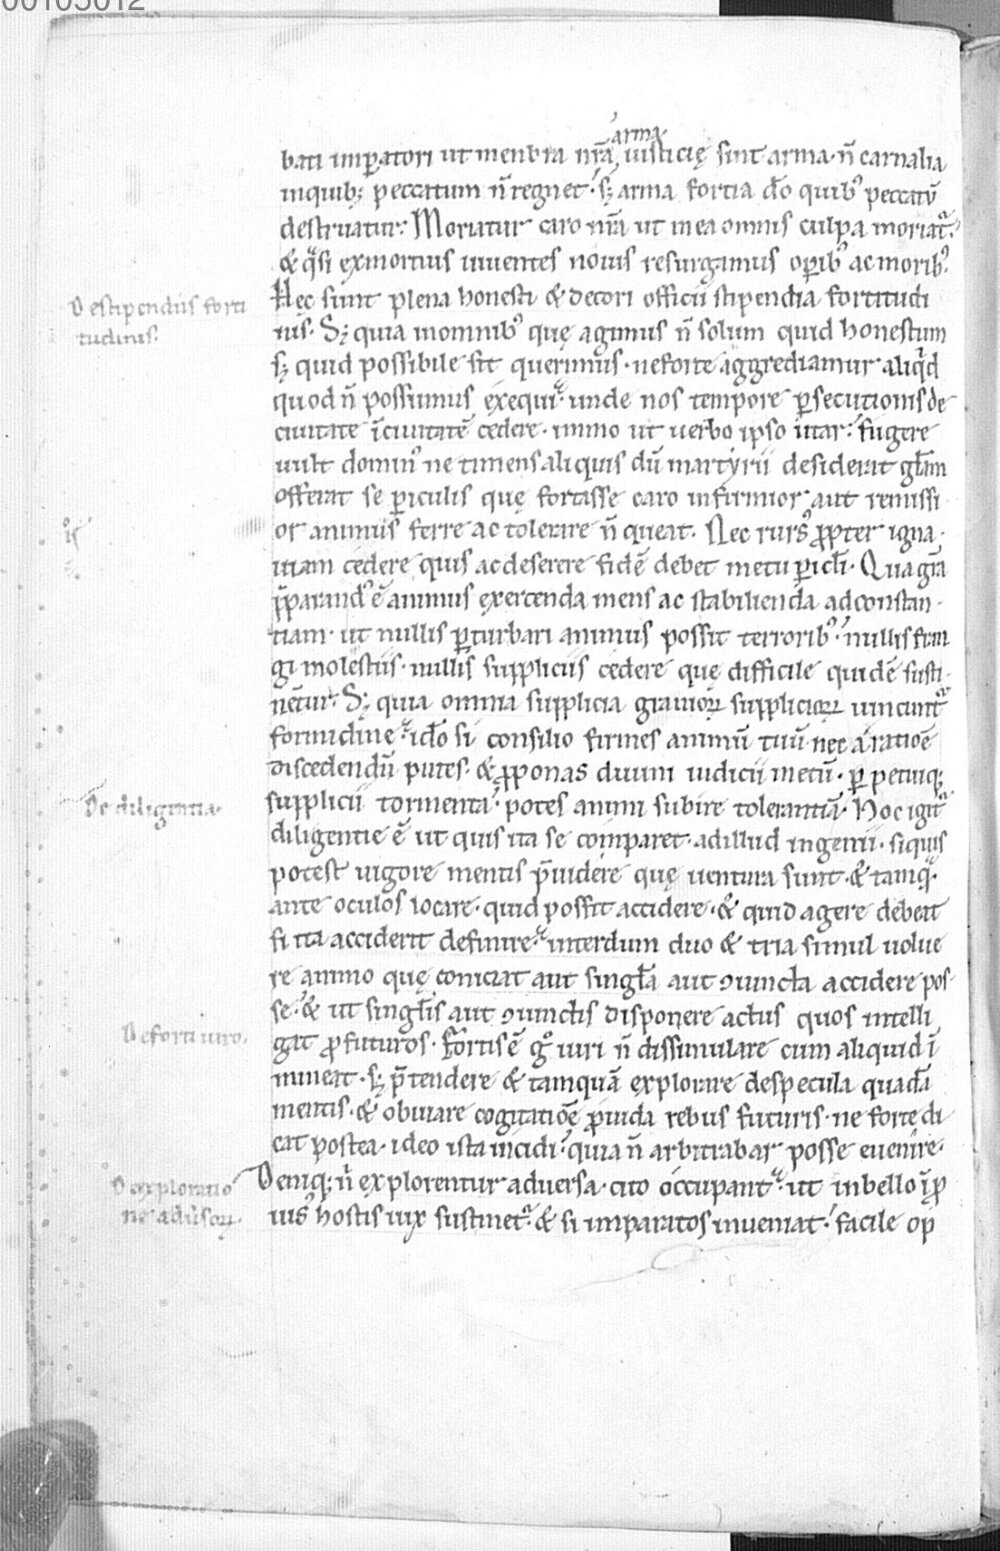 00105012
arma
bati imꝑatori ut menbra nr̄a, iusticię sint arma· n̄ carnalia
inquib; peccatum n̄ regnet· s; arma fortia dō quib᾿ peccatū
destruatur. Moriatur caro nr̄a ut mea omnis culpa moriat᷑.
& q̄si exmortuis uiuentes nouis resurgamus oꝑib᾿ ac morib᾿.
Hęc sunt plena honesti & decori officii stipendia fortitudi
De stipendiis forti
tudinis.
nis. S; quia inomnib᾿ quę agimus n̄ solum quid honestum
s; quid possibile sit querimus· neforte aggrediamur aliq̇d
quod n̄ possumus exequi· unde nos tempore ꝑsecutionis de
ciuitate ī ciuitatē cedere· immo ut uerbo ipso utar· fugere
uult domin᾿ ne timens aliquis dū martyrii desiderat glām
offerat se ꝑiculis quę fortasse caro infirmior aut remissi
or animus ferre ac tolerare n̄ queat. Nec rurs᾿ ꝓpter igna·
uiam cedere quis ac deserere fidē debet metu ꝑicl̄i· Qua gr̄a
p̄parand᾿ ē animus exercenda mens ac stabilienda ad constan·
tiam· ut nullis ꝑturbari animus possit terrorib᾿· nullis fran
gi molestiis· nullis suppliciis cedere quę difficile quidē susti·
nentur. S; quia omnia supplicia grauioꝝ supplicioꝝ uincunt᷑
formidine· idō si consilio firmes animū tuū nec a ratiōe
discedendū putes· & ꝓponas diuini iudicii metū· ꝑpetuiq;
supplicii tormenta· potes animi subire tolerantiā· Hoc igit᷑
De diligentia·
diligentie ē ut quis ita se comparet· ad illud ingenii· siquis
potest uigore mentis p̄uidere quę uentura sunt· & tamq̄·
ante oculos locare· quid possit accidere· & quid agere debeat
si ita acciderit definire· interdum duo & tria simul uolue
re animo quę coniciat aut singl̄a aut ꝯiuncta accidere pos·
se· & ut singl̄is aut ꝯiunctis disponere actus quos intelli
De forti uiro.
gat ꝓfuturos· Fortis ē gͦ uiri n̄ dissimulare cum aliquid ī
mineat· s; p̄tendere & tamquā explorare despecula quadā
mentis· & obuiare cogitatiōe ꝓuida rebus futuris· ne forte di
cat postea· ideo ista incidi· quia n̄ arbitrabar posse euenire·
De exploratio
ne aduersoꝝ·
Deniq; n̄ explorentur aduersa· cito occupant᷑· ut inbello īꝓ
uis᾿ hostis uix sustinet᷑· & si imparatos inueniat· facile op